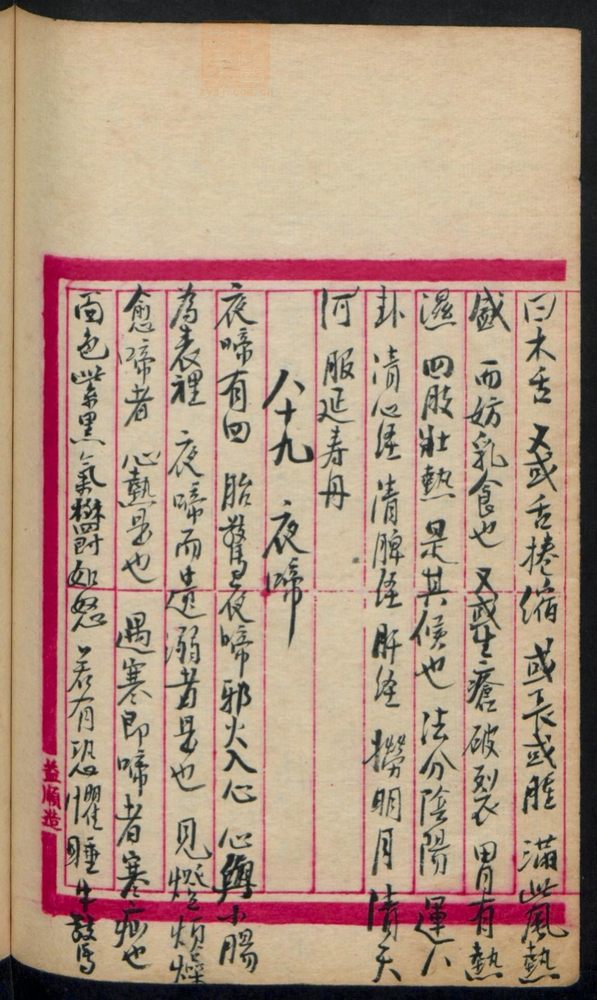 曰木舌 又或舌捲縮 或長或腫 滿此風熱
盛 而妨乳食也 又或生瘡破裂 胃有熱
濕 四肢壯熱 是其候也 法分陰陽 運八
卦 清心經 清脾經 肝經 撈明月 清天
河 服延寿丹
八十九 夜啼
夜啼有四 胎驚夜啼 邪火入心 心與小腸
為表裡 夜啼而遺溺者是也 見燈煩燥
愈啼者 心熱是也 遇寒即啼者寒疝也
面色紫黑氣欝如怒 若有恐懼睡中驚
益順造